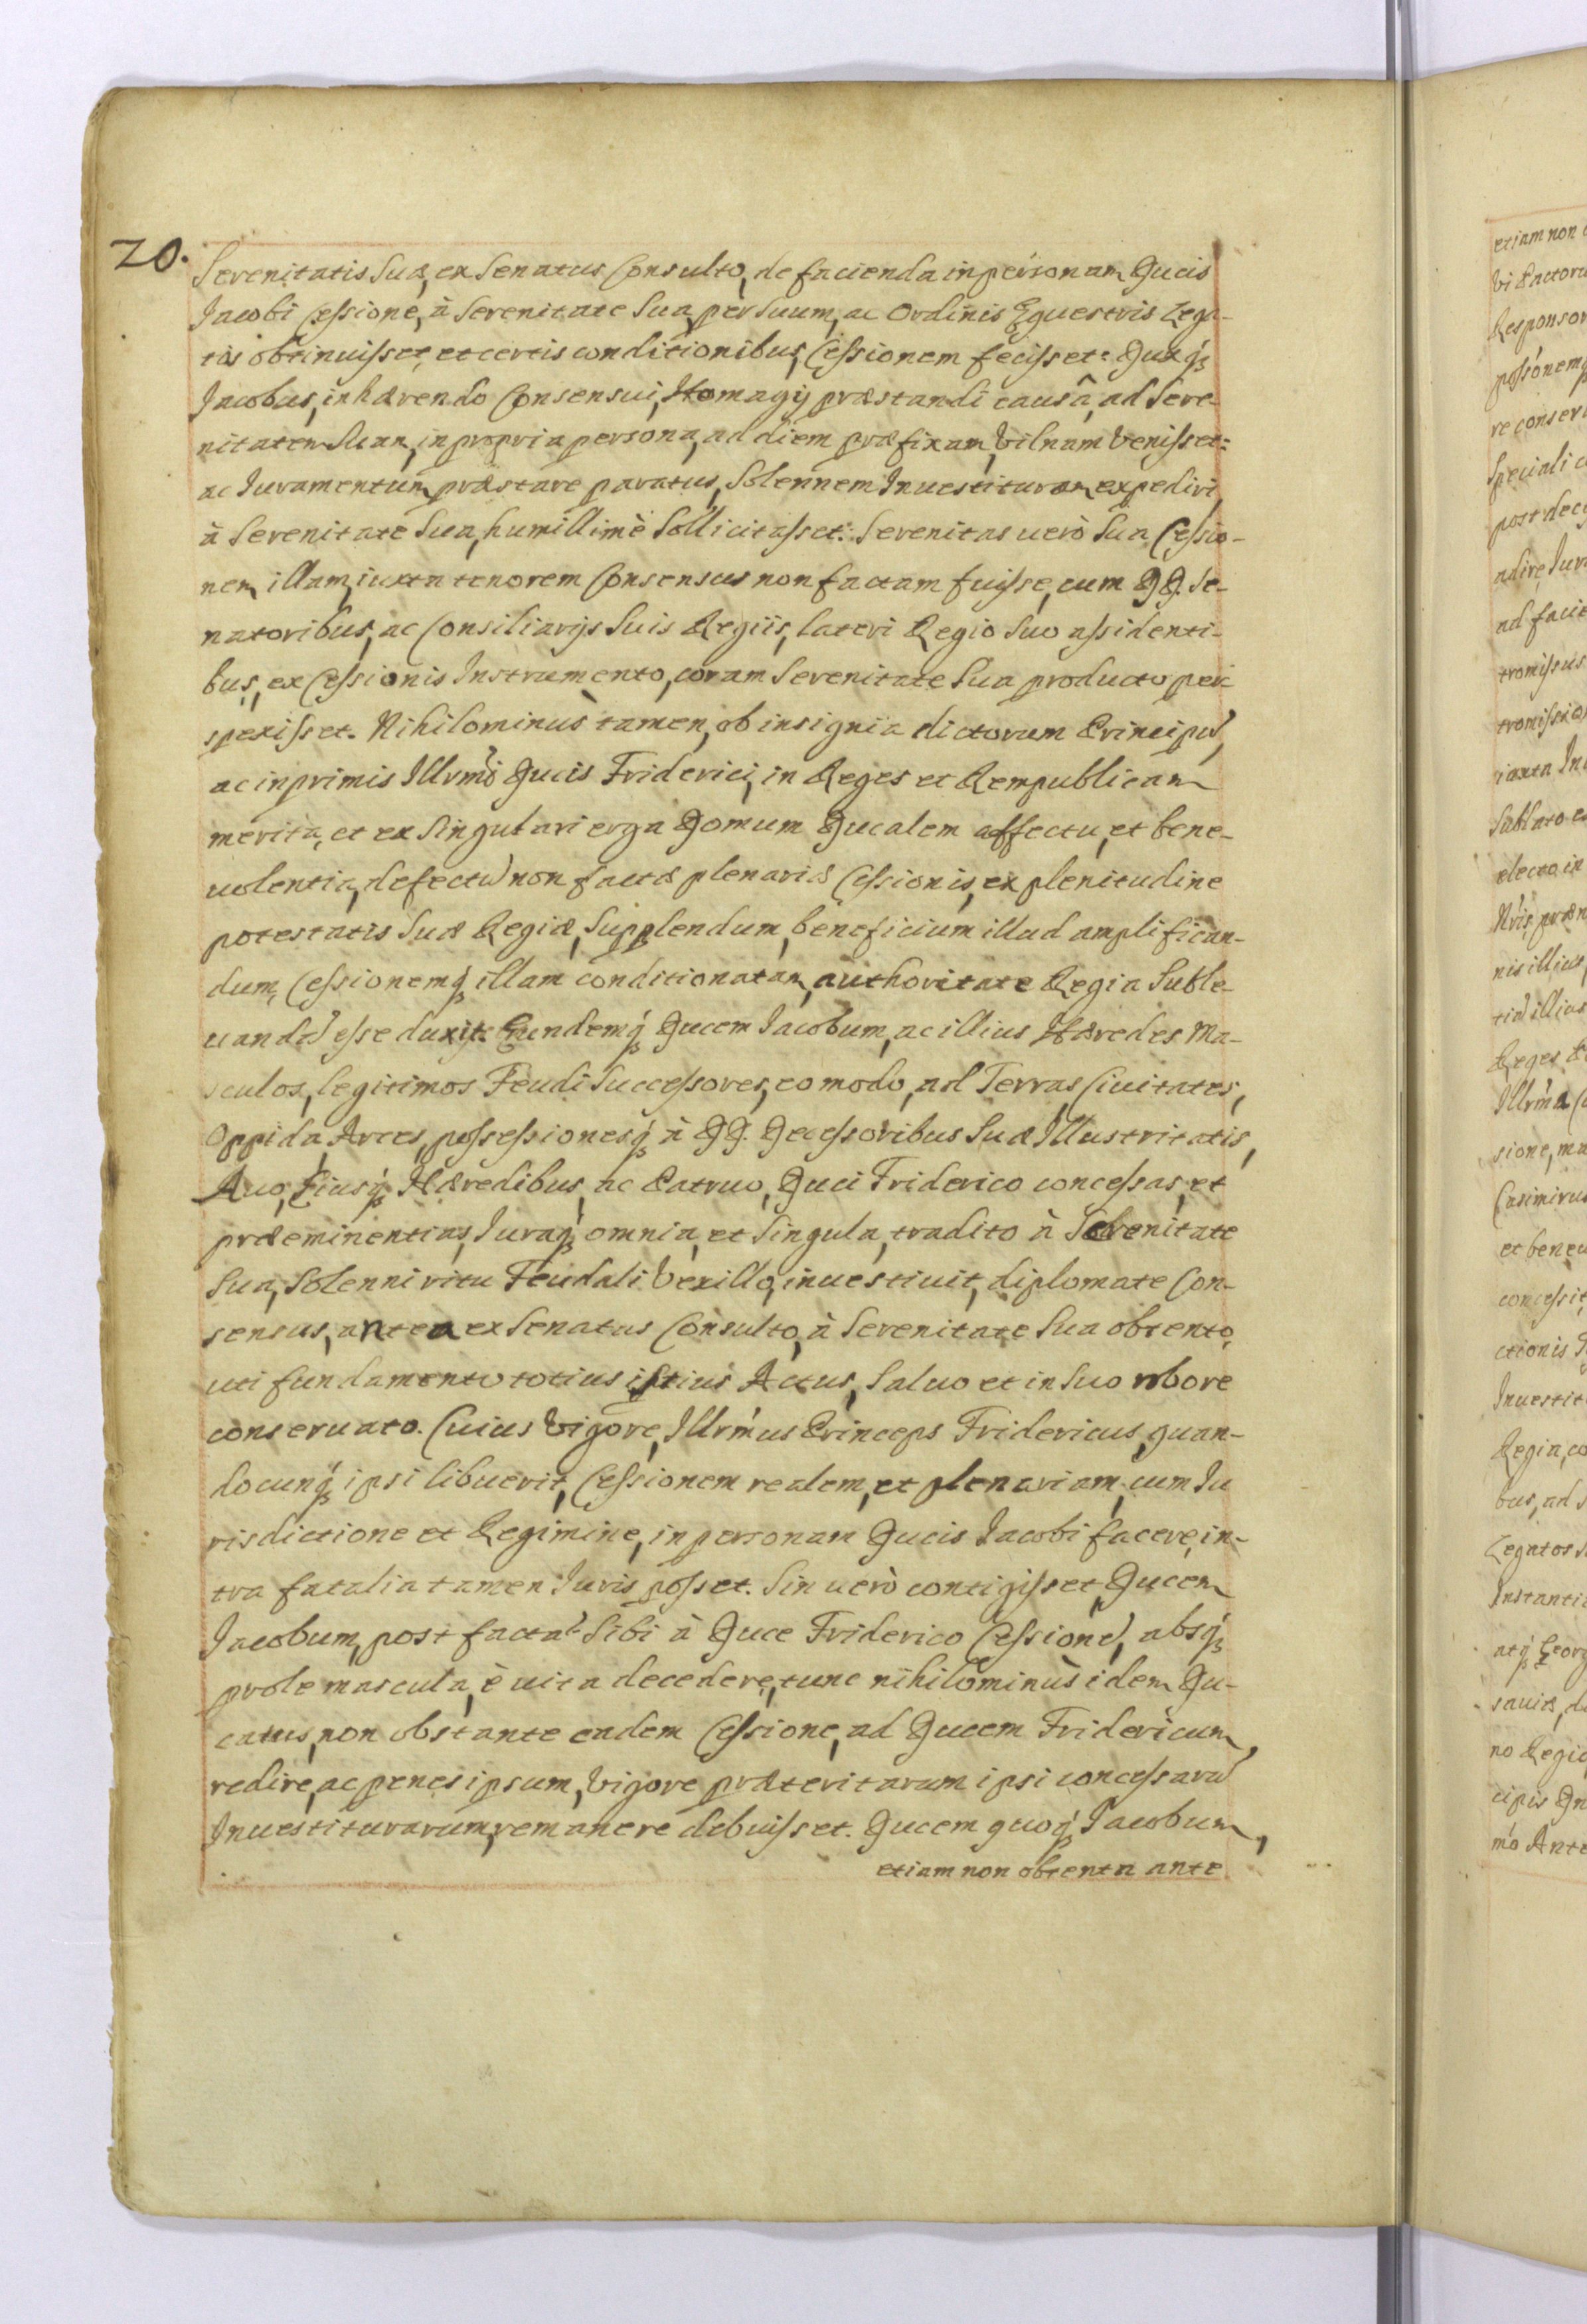 20.
Serenitatis Suæ, ex Senatus Consulto, de facienda in personam Ducis
Jacobi Cessione, à Serenitate Sua, per Suum, ac Ordinis Equestris Lega-
tos obtinuisset, et certis conditionibus, Cessionem fecisset: Duxq́ꝫ
Jacobus, inhærendo Consensui, Homagij præstandi causâ, ad Sere
nitatem Suam, in propria persona, ad diem præfixam, Vilnam venisset:
ac Iuramentum præstare paratus, Solennem Inuestituram expediri
à Serenitate Sua, humillimè Sollicitasset: Serenitas uerò Sua Cessio-
nem illam, iuxta tenorem Consensus non factam fuisse, cum DD. Se-
natoribus, ac Consiliarijs Suis Regiis, lateri Regio Suo assidenti-
bus, ex Cessionis Instrumento, coram Serenitate Sua producto per
spexisset. Nihilominus tamen, ob insignia dictorum Principũ,
ac inprimis Illrmi Ducis Friderici, in Reges et Rempublicam
merita, et ex Singulari erga Domum Ducalem affectu, et bene-
uolentia, defectũ non factæ plenariæ Cessionis, ex plenitudine
potestatis Suæ Regiæ, Supplendum, beneficium illud amplifican-
dum, Cessionemq́ꝫ illam conditionatam, authoritate Regia Suble-
uandã esse duxit. Eundemq́ꝫ Ducem Jacobum, ac illius Hæredes Ma-
sculos, legitimos Feudi Successores, eo modo, ad Terras Ciuitates,
Oppida, Arces, possessionesq́ꝫ à DD. Decessoribus Suæ Illustritatis,
Auo, Eiusq́ꝫ Hæredibus, ac Patruo, Duci Friderico concessas, et
præeminentias, Iuraq́ꝫ omnia, et Singula, tradito à Serenitate
Sua, Solenni ritu Feudali Vexillo, inuestiuit, diplomate Con-
sensus, antea ex Senatus Consulto, à Serenitate Sua obtento,
uti fundamento totius istius Actus, Saluo et in Suo robore
conseruato. Cuius Vigore, Illrmus Princeps Fridericus, quan-
docunq́ꝫ ipsi libuerit, Cessionem realem, et plenariam, cum Iu
risdictione et Regimine, in personam Ducis Jacobi facere, in-
tra fatalia tamen Iuris posset. Sin uerò contigisset, Ducem
Jacobum, post factã Sibi à Duce Friderico Cessionẽ, absq́ꝫ
prole mascula, è uita decedere, tunc nihilominùs idem Du-
catus, non obstante eadem Cessione, ad Ducem Fridericum,
redire, ac penes ipsum, Vigore præteritarum ipsi concessarũ
Inuestiturarum, remanere debuisset. Ducem quoq́ꝫ Jacobum,
etiam non obtenta ante
etiam non
Responsor
re conser
Speciali
post dec
adire, Iur
ad faci
tromissus
iuxta In
Sublato
nis illius
Reges
Illrma
sione, ma
Casimirus
et beneu
concessit
ctionis
Inuestit
Regia, co
bus, ad
Legatos
Instanti
atq́ꝫ Georg
no Regio
cipis
mo Ante